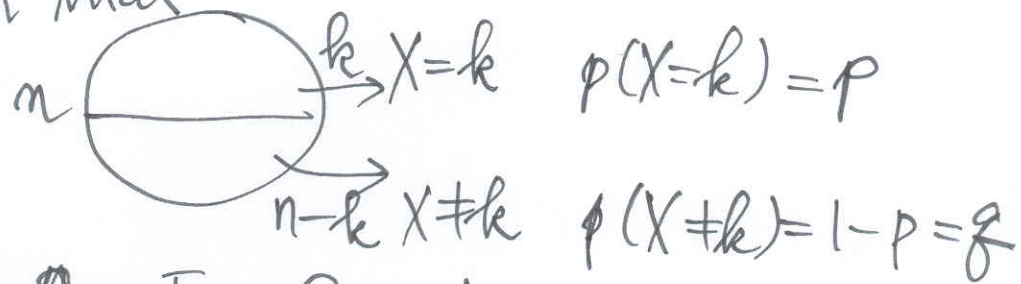 k X=k p(X=k)=p
n
n-k X≠k p(X≠k)=1-p=q